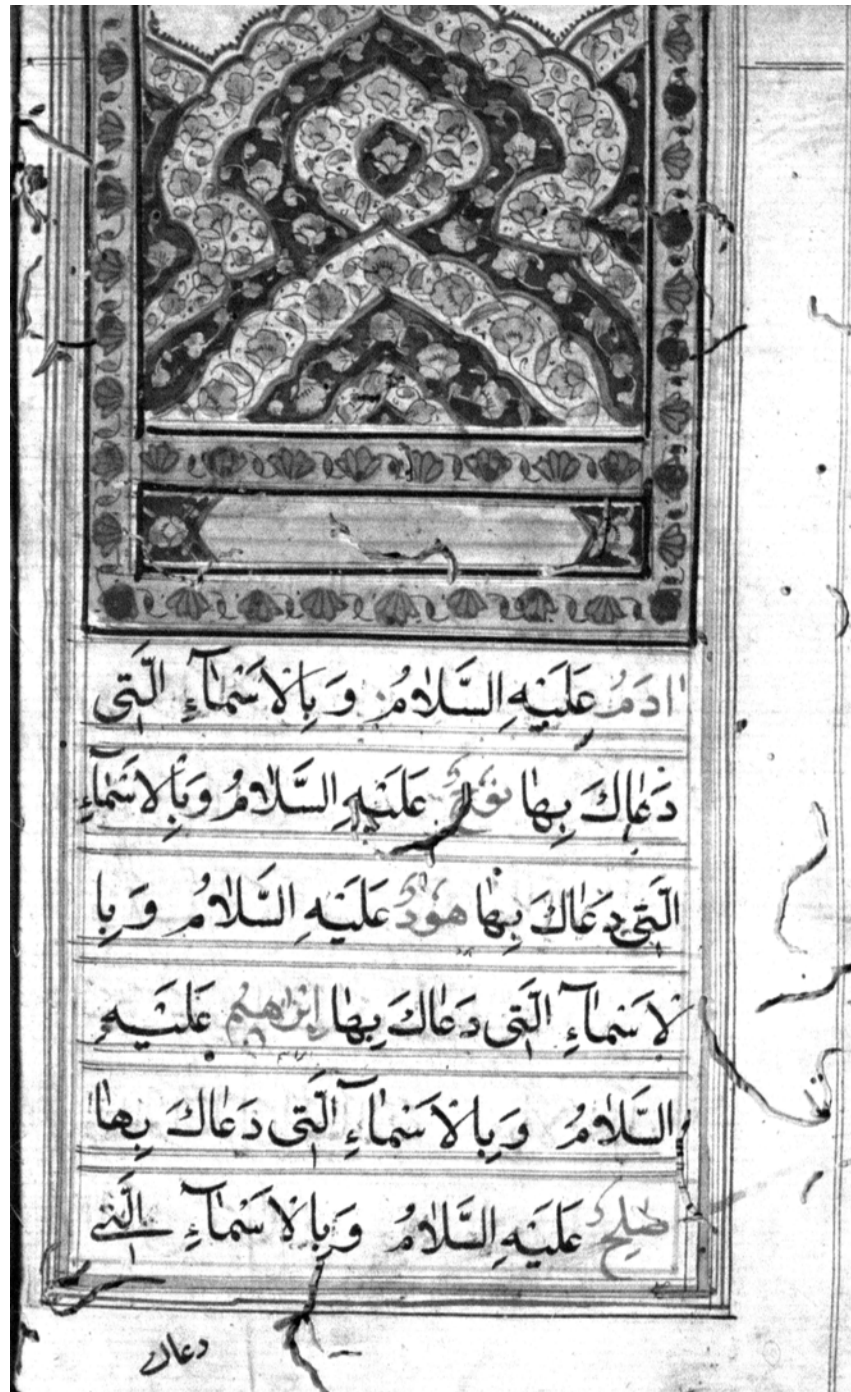 اٰدَمُ عَلَيْهِ السَّلَامُ وَبِالْاَسْمَآءِ الَّتِى
دَعَاكَ بِهَا نُوْحٌ عَلَيْهِ السَّلَامُ وَبِالْاَسْمَآءِ
الَّتِى دَعَاكَ بِهَا هُوْدٌ عَلَيْهِ السَّلَامُ وَبِا
لْاَسْمَآءِ الَّتِى دَعَاكَ بِهَا اِبْرٰهِيْمُ عَلَيْهِ
السَّلَامُ وَبِالْاَسْمَآءِ الَّتِى دَعَاكَ بِهَا
صٰلِحٌ عَلَيْهِ السَّلَامُ وَبِالْاَسْمَآءِ الَّتِى
دعاك